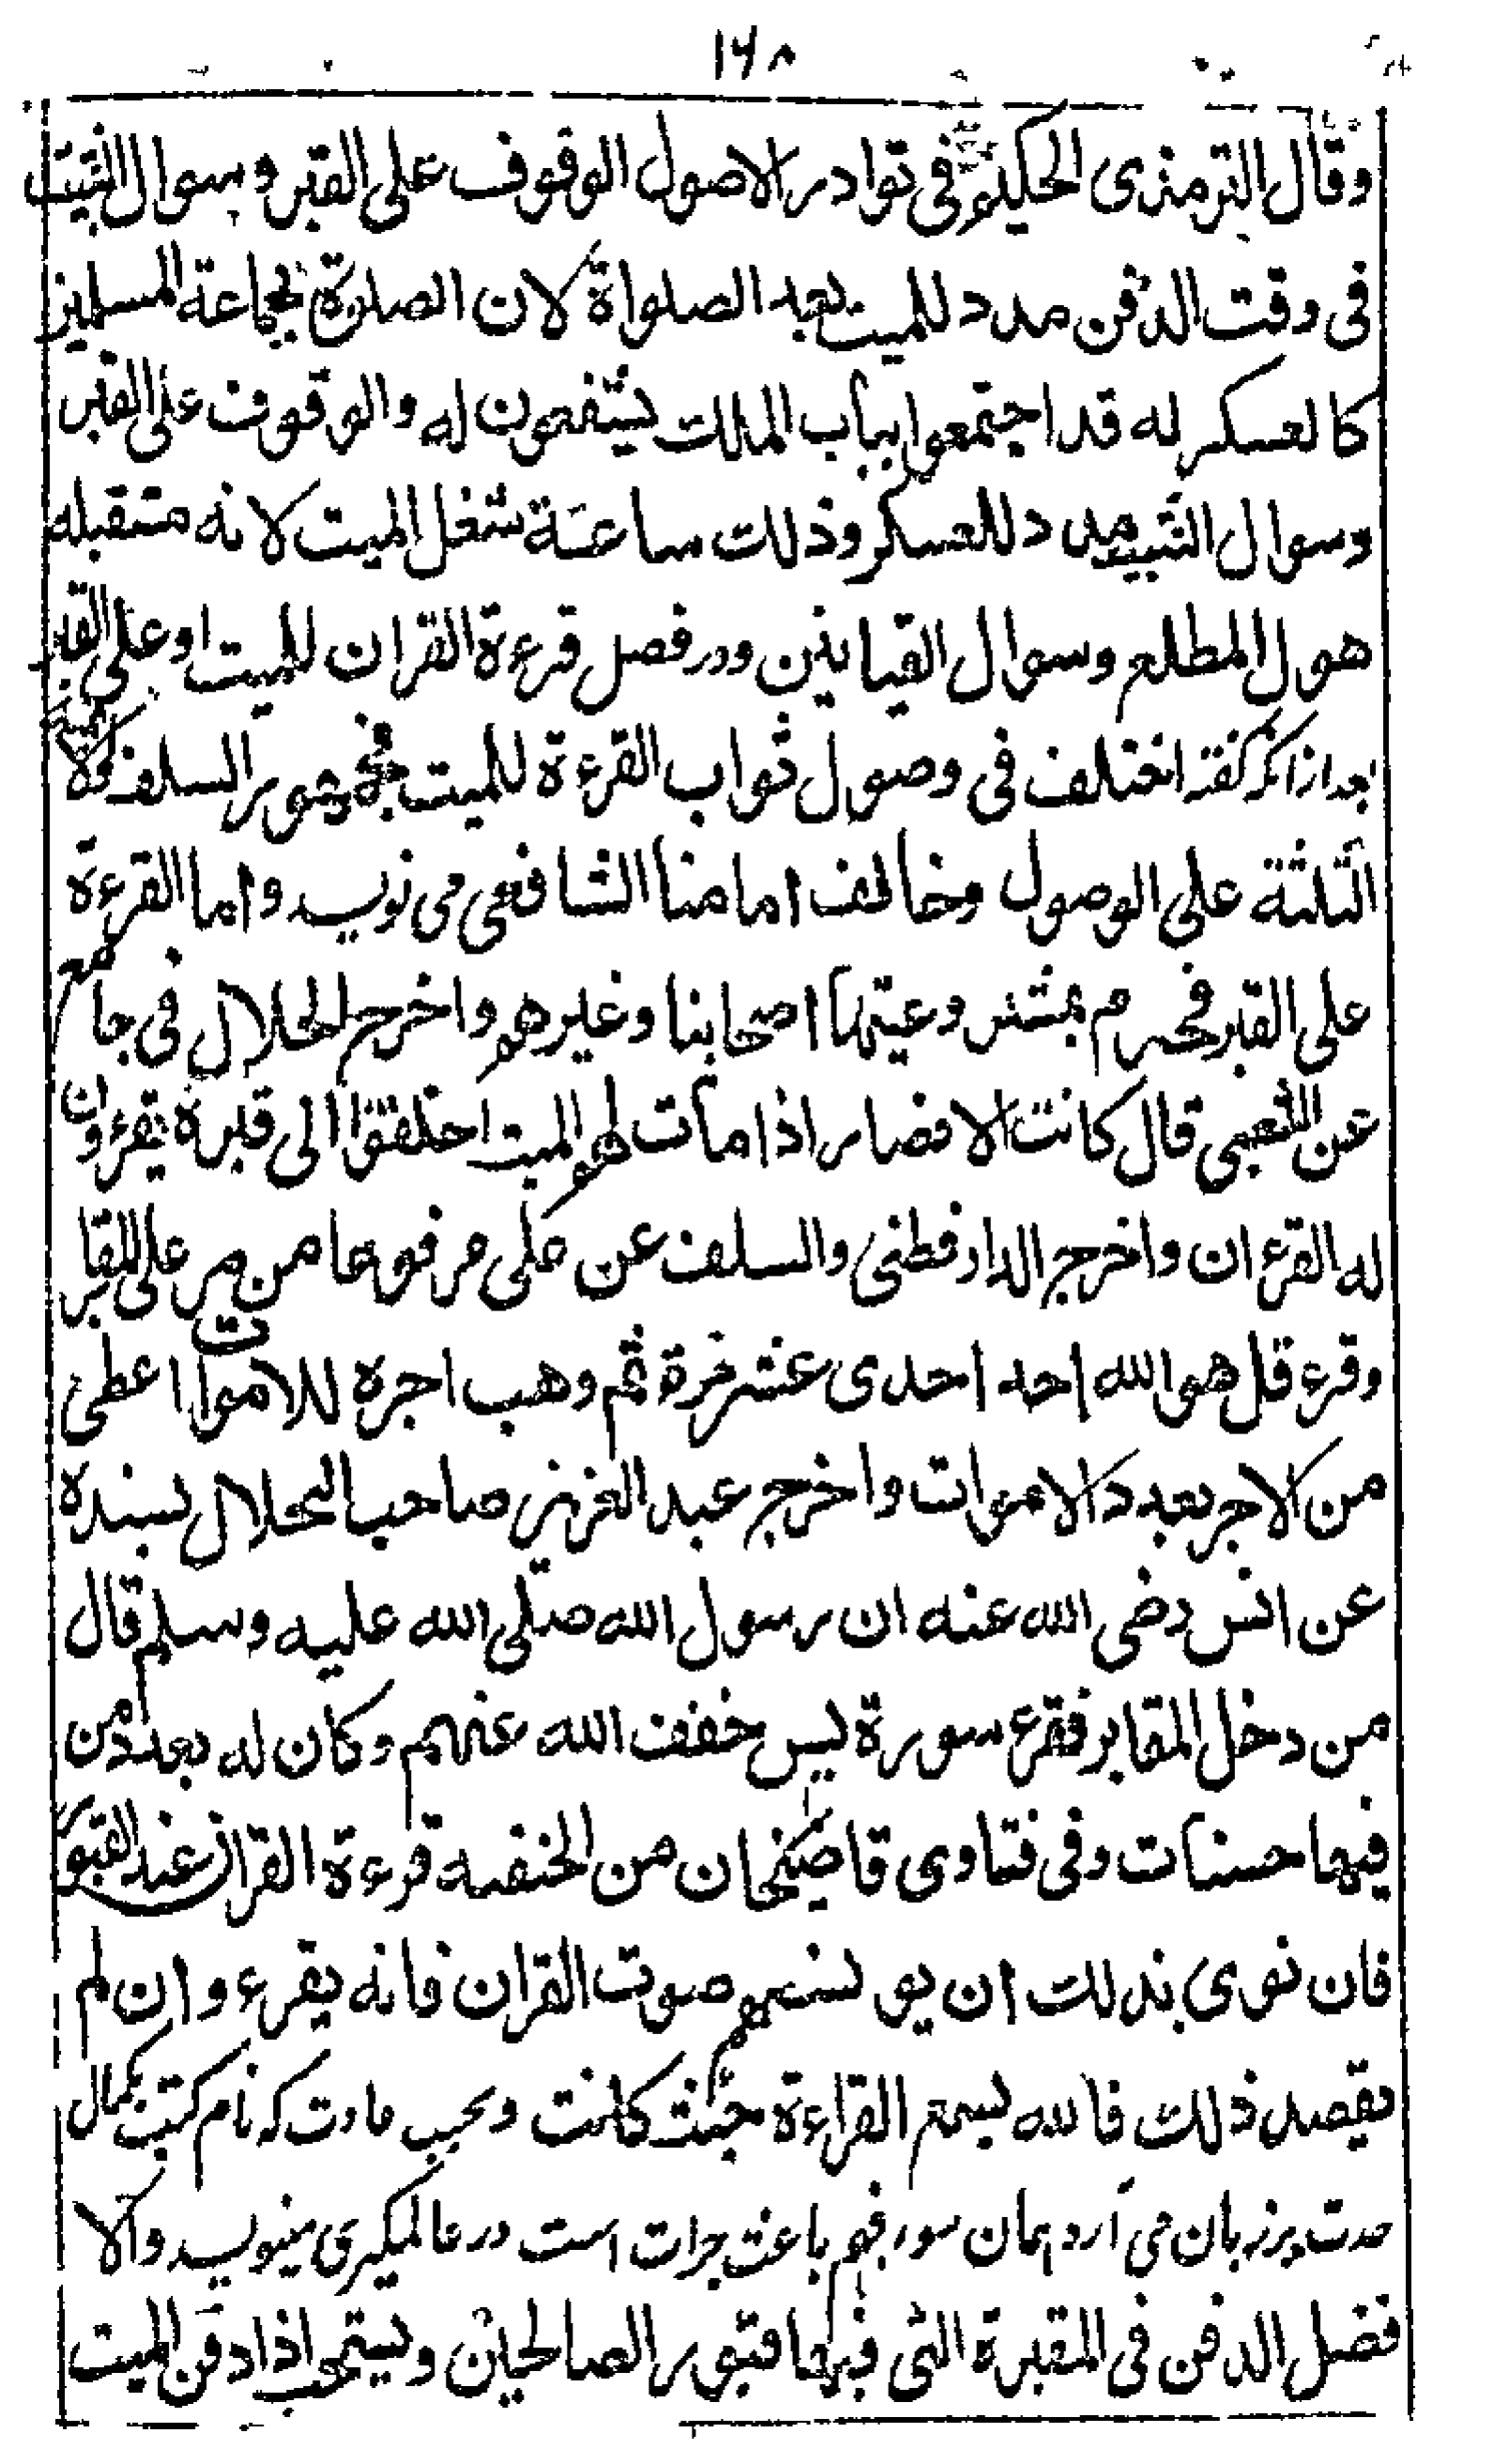 ١٦٨
وقال الترمذى الحكيم فى توادر الاصول الوقوف على القبر وسوال التثبيت
فى وقت الدفن مدد للميت بعد الصلواة لان الصلوة بجماعة المسلمين
كالعسكر له قد اجتمعوا بباب الملك يشفعون له والوقوف على القبر
وسوال التثبيت مدد للعسكر وذلك ساعة شغل الميت لانه مستقبله
هول المطلع وسوال القبانين ودر فصل قرءة القران للميت او على القبر
بعد ازانكه گفته اختلف فى وصول ثواب القرءة للميت فجمهور السلف والائمة
الثلثة على الوصول وخالف امامنا الشافعى مى نويسد واما القرءة
على القبر فجزم بمشروعيتها اصحابنا وغيرهم واخرج الحلال فى جامع
عن الشعبى قال كانت الانصار اذا مات لهم الميت اختلفوا الى قبره يقرءون
له القرءان واخرج الدارقطنى والسلف عن على مرفوعا من مر على المقابر
وقرء قل هو الله احد احدى عشر مرة ثم وهب اجره للاموات اعطى
من الاجر بعدد الاموات واخرج عبد العزيز صاحب الحلال بسنده
عن انس رضى الله عنه ان رسول الله صلى الله عليه وسلم قال
من دخل المقابر فقرء سورة يس خفف الله عنهم وكان له بعدد من
فيها حسنات وفى فتاوى قاضيخان من الحنفيه قرءة القران عند القبور
فان نوى بذلك ان يونسهم صوت القران فانه يقرء وان لم
يقصد ذلك فالله يسمع القراءة حيث كانت وبحسب عادت كه نام كتب بكمال
حدت بر زبان مى آرد همان سوء فهم باعث جرات است در عالمگيرى مينويسد والا
فضل الدفن فى المقبرة التى فيها قبور الصالحين ويستحب اذا دفن الميت